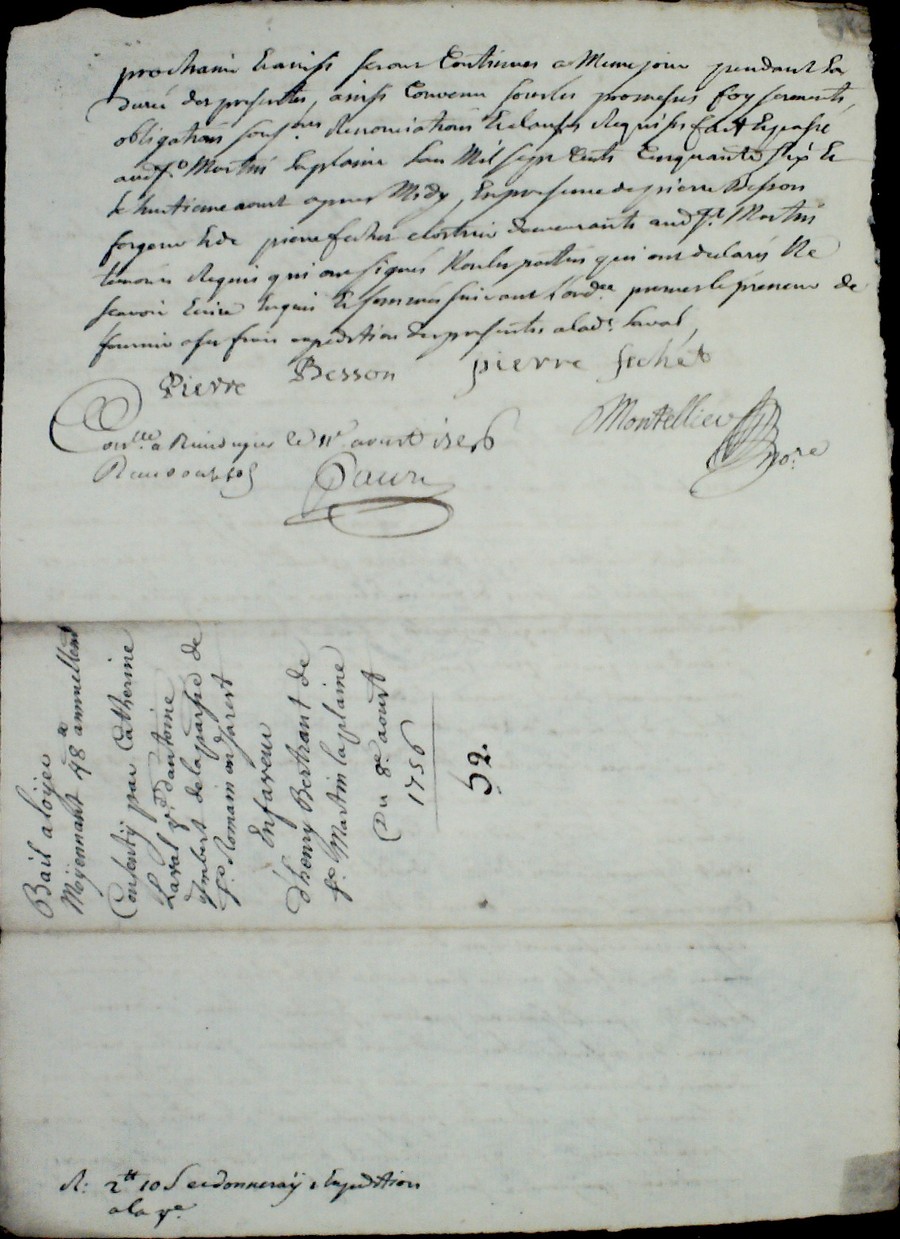 prochaine Et ainsi seront Continues a Meme jour pendant La
Durée des presentes, ainsi Convenu sous les promesses foy serments,
obligations Renonciations Et clauses Requises fait Et passé
aud. St Martin La plaine Lan Mil sept Cents Cinquante Six Et
Le huitieme aoust apres Midy, En presence de pierre Besson
forgeur Et de pierre fichet cloutrier demeurants aud. St Martin
temoins Requis qui ont signés Non les parties qui ont declarés Ne
scavoir Ecrire Enquis Et sommés suivant Lord.ce le preneur de
fournir a ses frais expedition des presentes a lad. Laval,
Pierre Besson pierre fichet
Montellier no.re
Con.lle a Rivedegier le aoust 1756
Baurr
Bail a loyer
Moyennant 48 annuellem.t
Consenty par Catherine
Laval v.e d'antoine
ymbert de la paroisse de
St. Romain en Jarest
En faveur
d'henry Bertrant de
St. Martin la plaine
Du 8.e aoust
1756
52.
R: 2tt 10 s et donneray Expedition
a la v.e